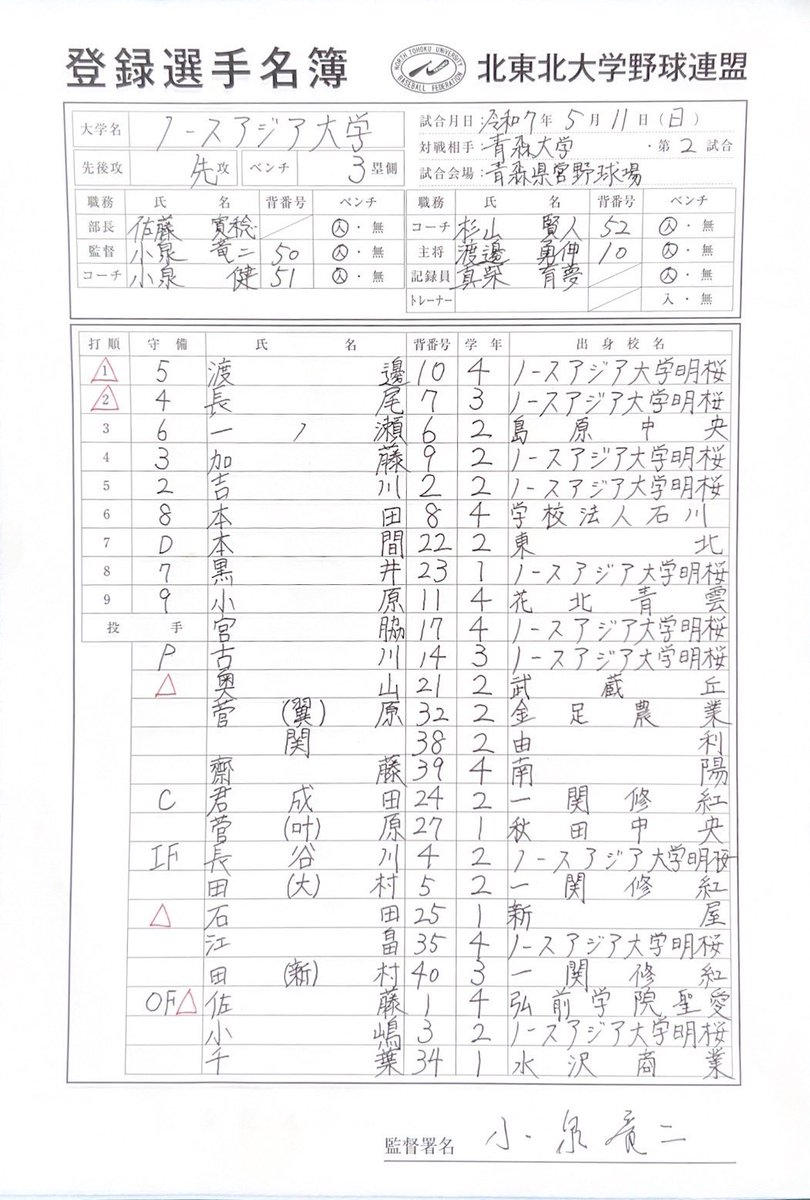 登録選手名簿 NORTH TOHOKU UNIVERSITY BASEBALL FEDERATION 北東北大学野球連盟
大学名 ノースアジア大学 試合月日 令和7年5月11日(日)
対戦相手:青森大学・第2試合
先後攻 先攻 ベンチ 3塁側 試合会場:青森県営野球場
職務 氏名 背番号 ベンチ 職務 氏名 背番号 ベンチ
部長 佐藤 寛稔 入・無 コーチ 杉山 賢人 52 入・無
監督 小泉 竜二 50 入・無 主将 渡邊 勇伸 10 入・無
コーチ 小泉 健 51 入・無 記録員 真栄 育夢 入・無
トレーナー 入・無
打順 守備 氏名 背番号 学年 出身校名
1 5 渡邊 10 4 ノースアジア大学明桜
2 4 長尾 7 3 ノースアジア大学明桜
3 6 一ノ瀬 6 2 島原中央
4 3 加藤 9 2 ノースアジア大学明桜
5 2 吉川 2 2 ノースアジア大学明桜
6 8 本田 8 4 学校法人石川
7 D 本間 22 2 東北
8 7 黒井 23 1 ノースアジア大学明桜
9 9 小原 11 4 花北青雲
投手 宮脇 17 4 ノースアジア大学明桜
P 古川 14 3 ノースアジア大学明桜
△ 奥山 21 2 武蔵丘
菅(翼)原 32 2 金足農業
関 38 2 由利
齋藤 39 4 南陽
C 君成田 24 2 一関修紅
菅(叶)原 27 1 秋田中央
IF 長谷川 4 2 ノースアジア大学明桜
田(大)村 5 2 一関修紅
△ 石田 25 1 新屋
江畠 35 4 ノースアジア大学明桜
田(新)村 40 3 一関修紅
OF△ 佐藤 1 4 弘前学院聖愛
小嶋 3 2 ノースアジア大学明桜
千葉 34 1 水沢商業
監督署名 小泉竜二